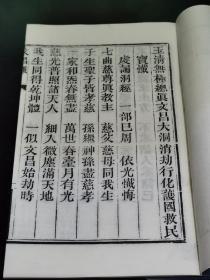 玉清無極總真文昌大洞消劫行化護國救民
寶懺
虔誦洞經 一部已周 依光懺悔
七曲慈尊真教主 慈父慈母同我生
子生聖子皆孝慈 孫繼神孫盡慈孝
一家和煦春無盡 萬世春臺月有光
慈光普照諸天人 細入微塵滿天地
我生同得乾坤體 一似文昌始劫時